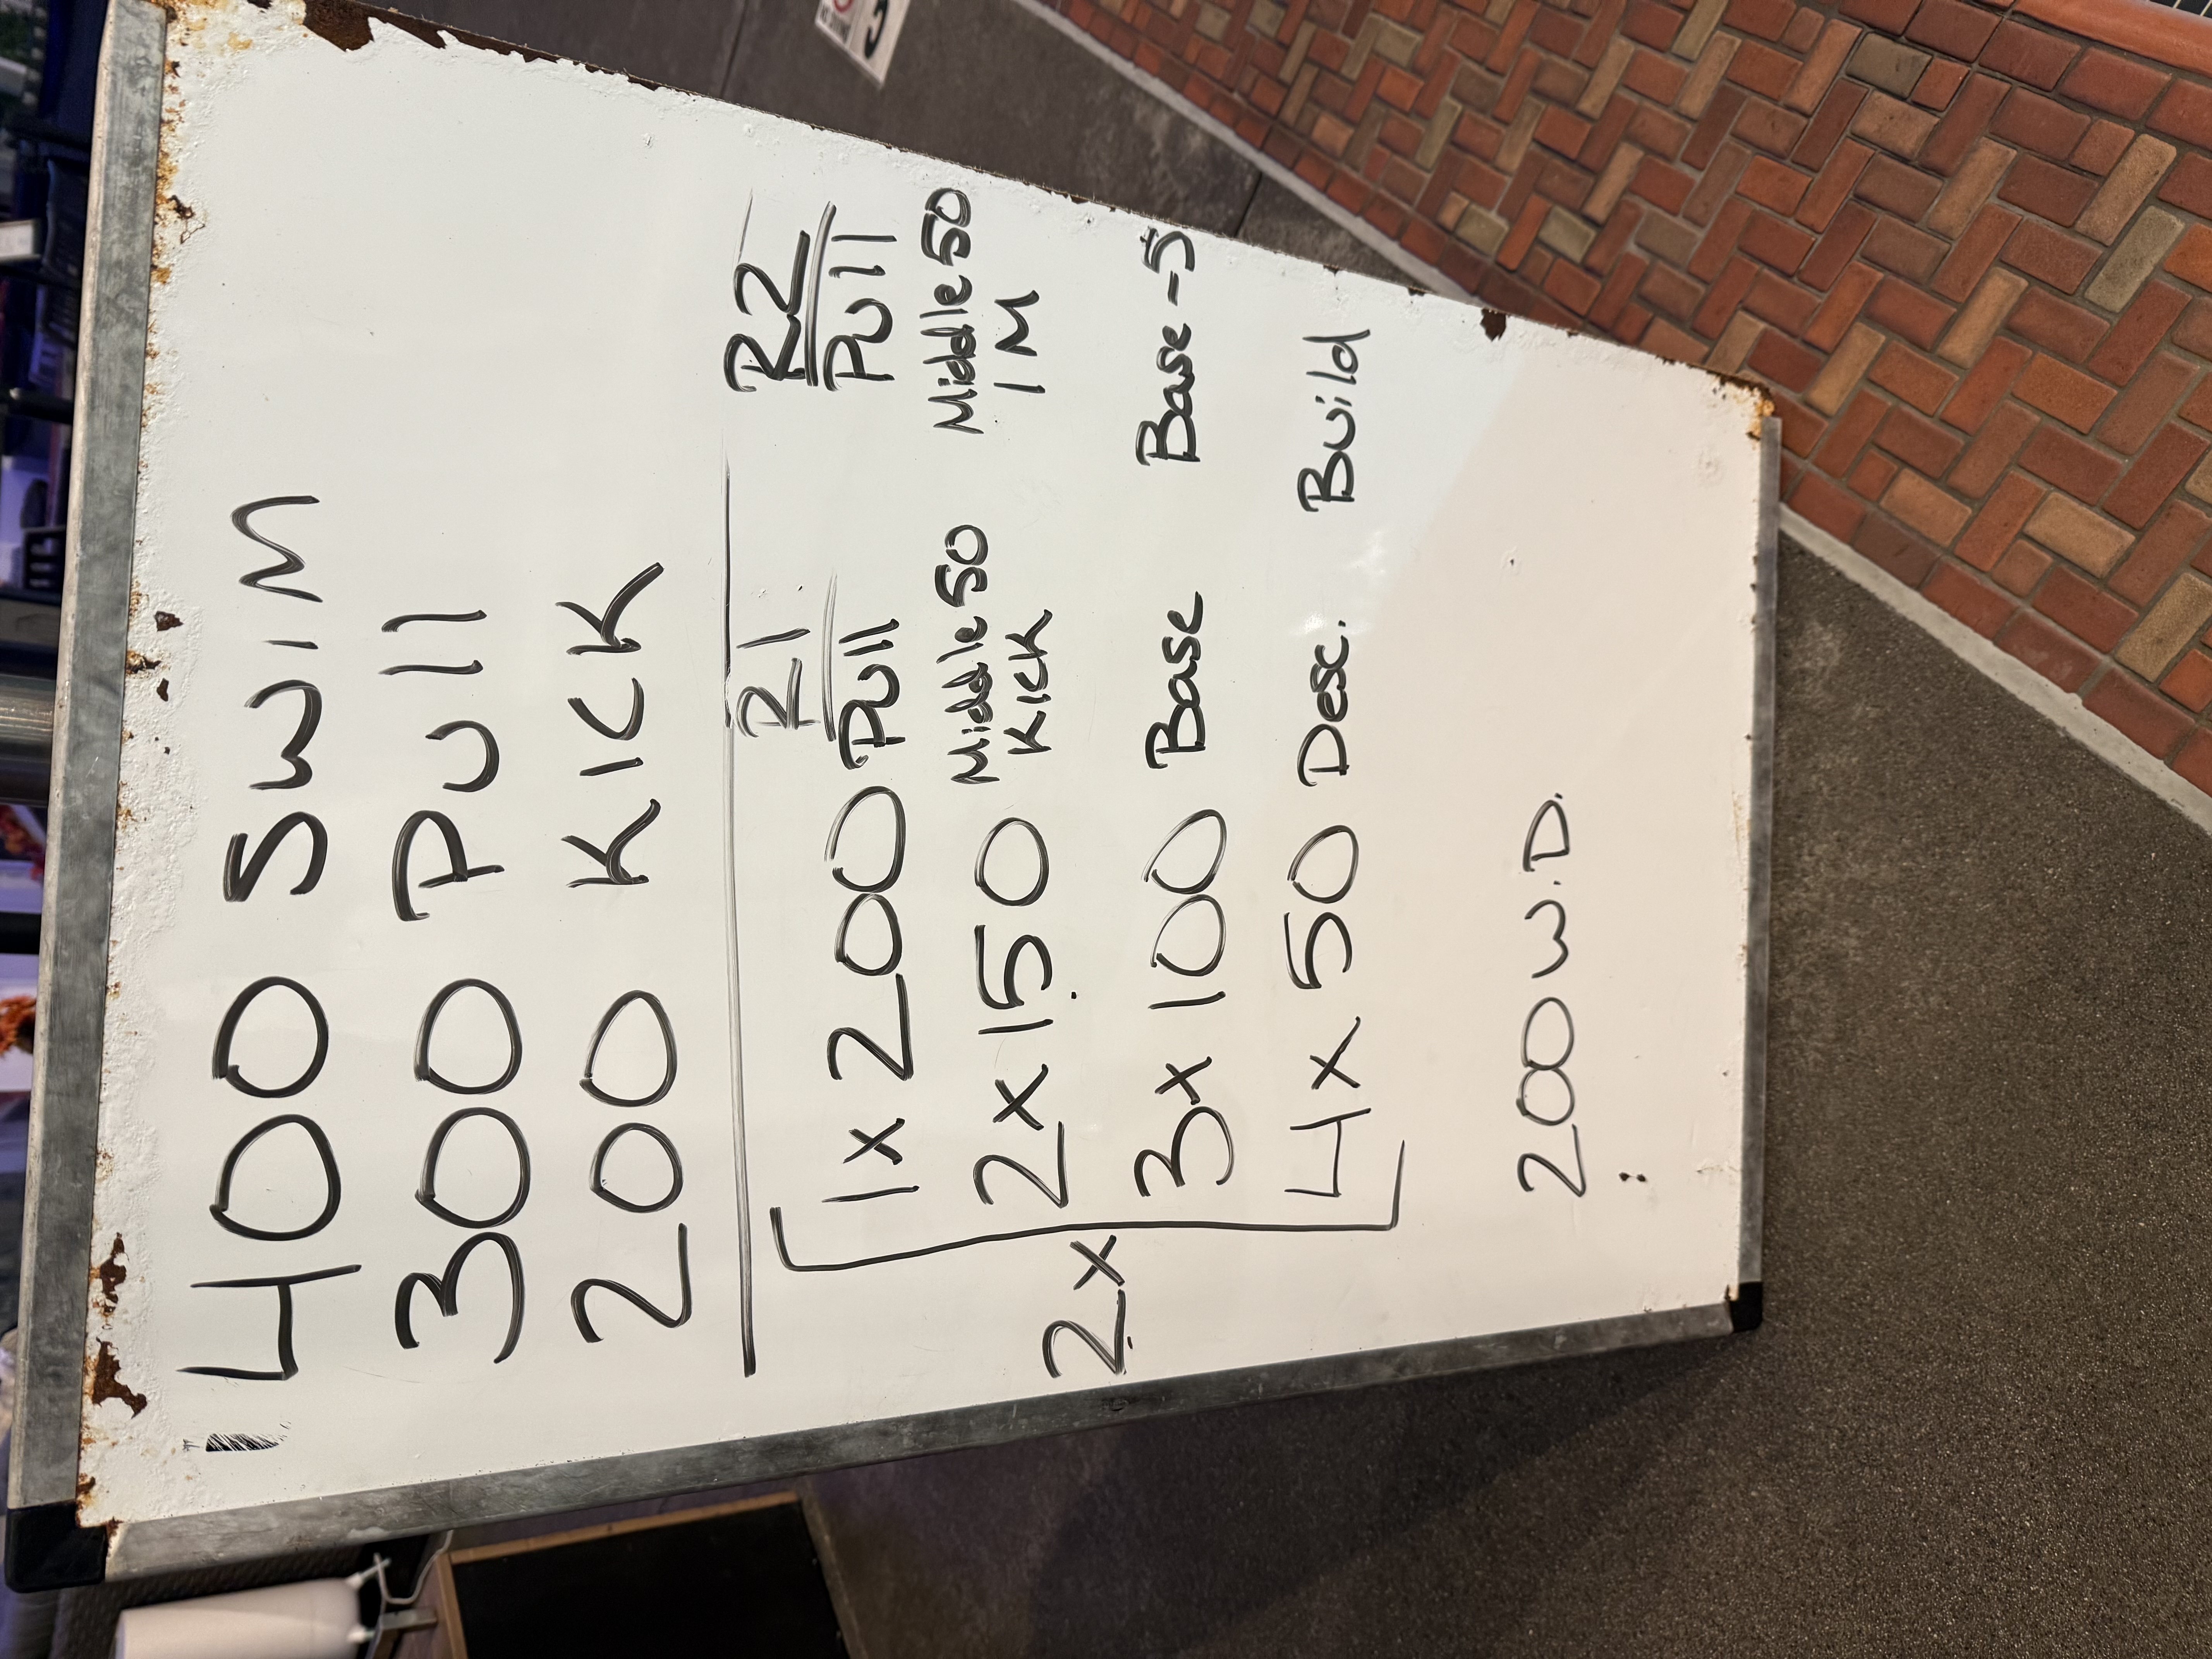 400 SWIM
300 Pull
200 KICK
R1 R2
1x200 Pull Pull
2x150 Middle 50 KICK Middle 50 IM
3x100 Base Base -5
4x50 Desc. Build
2x
200 W.D.